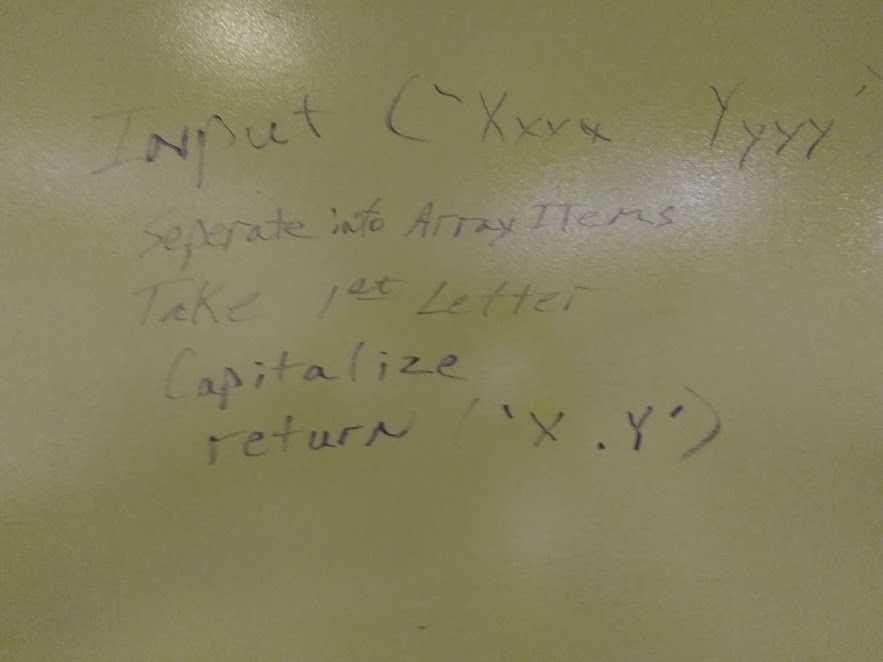 Input ('Xxxx Yyyy')
Seperate into Array Items
Take 1st Letter
Capitalize
return ('X.Y')